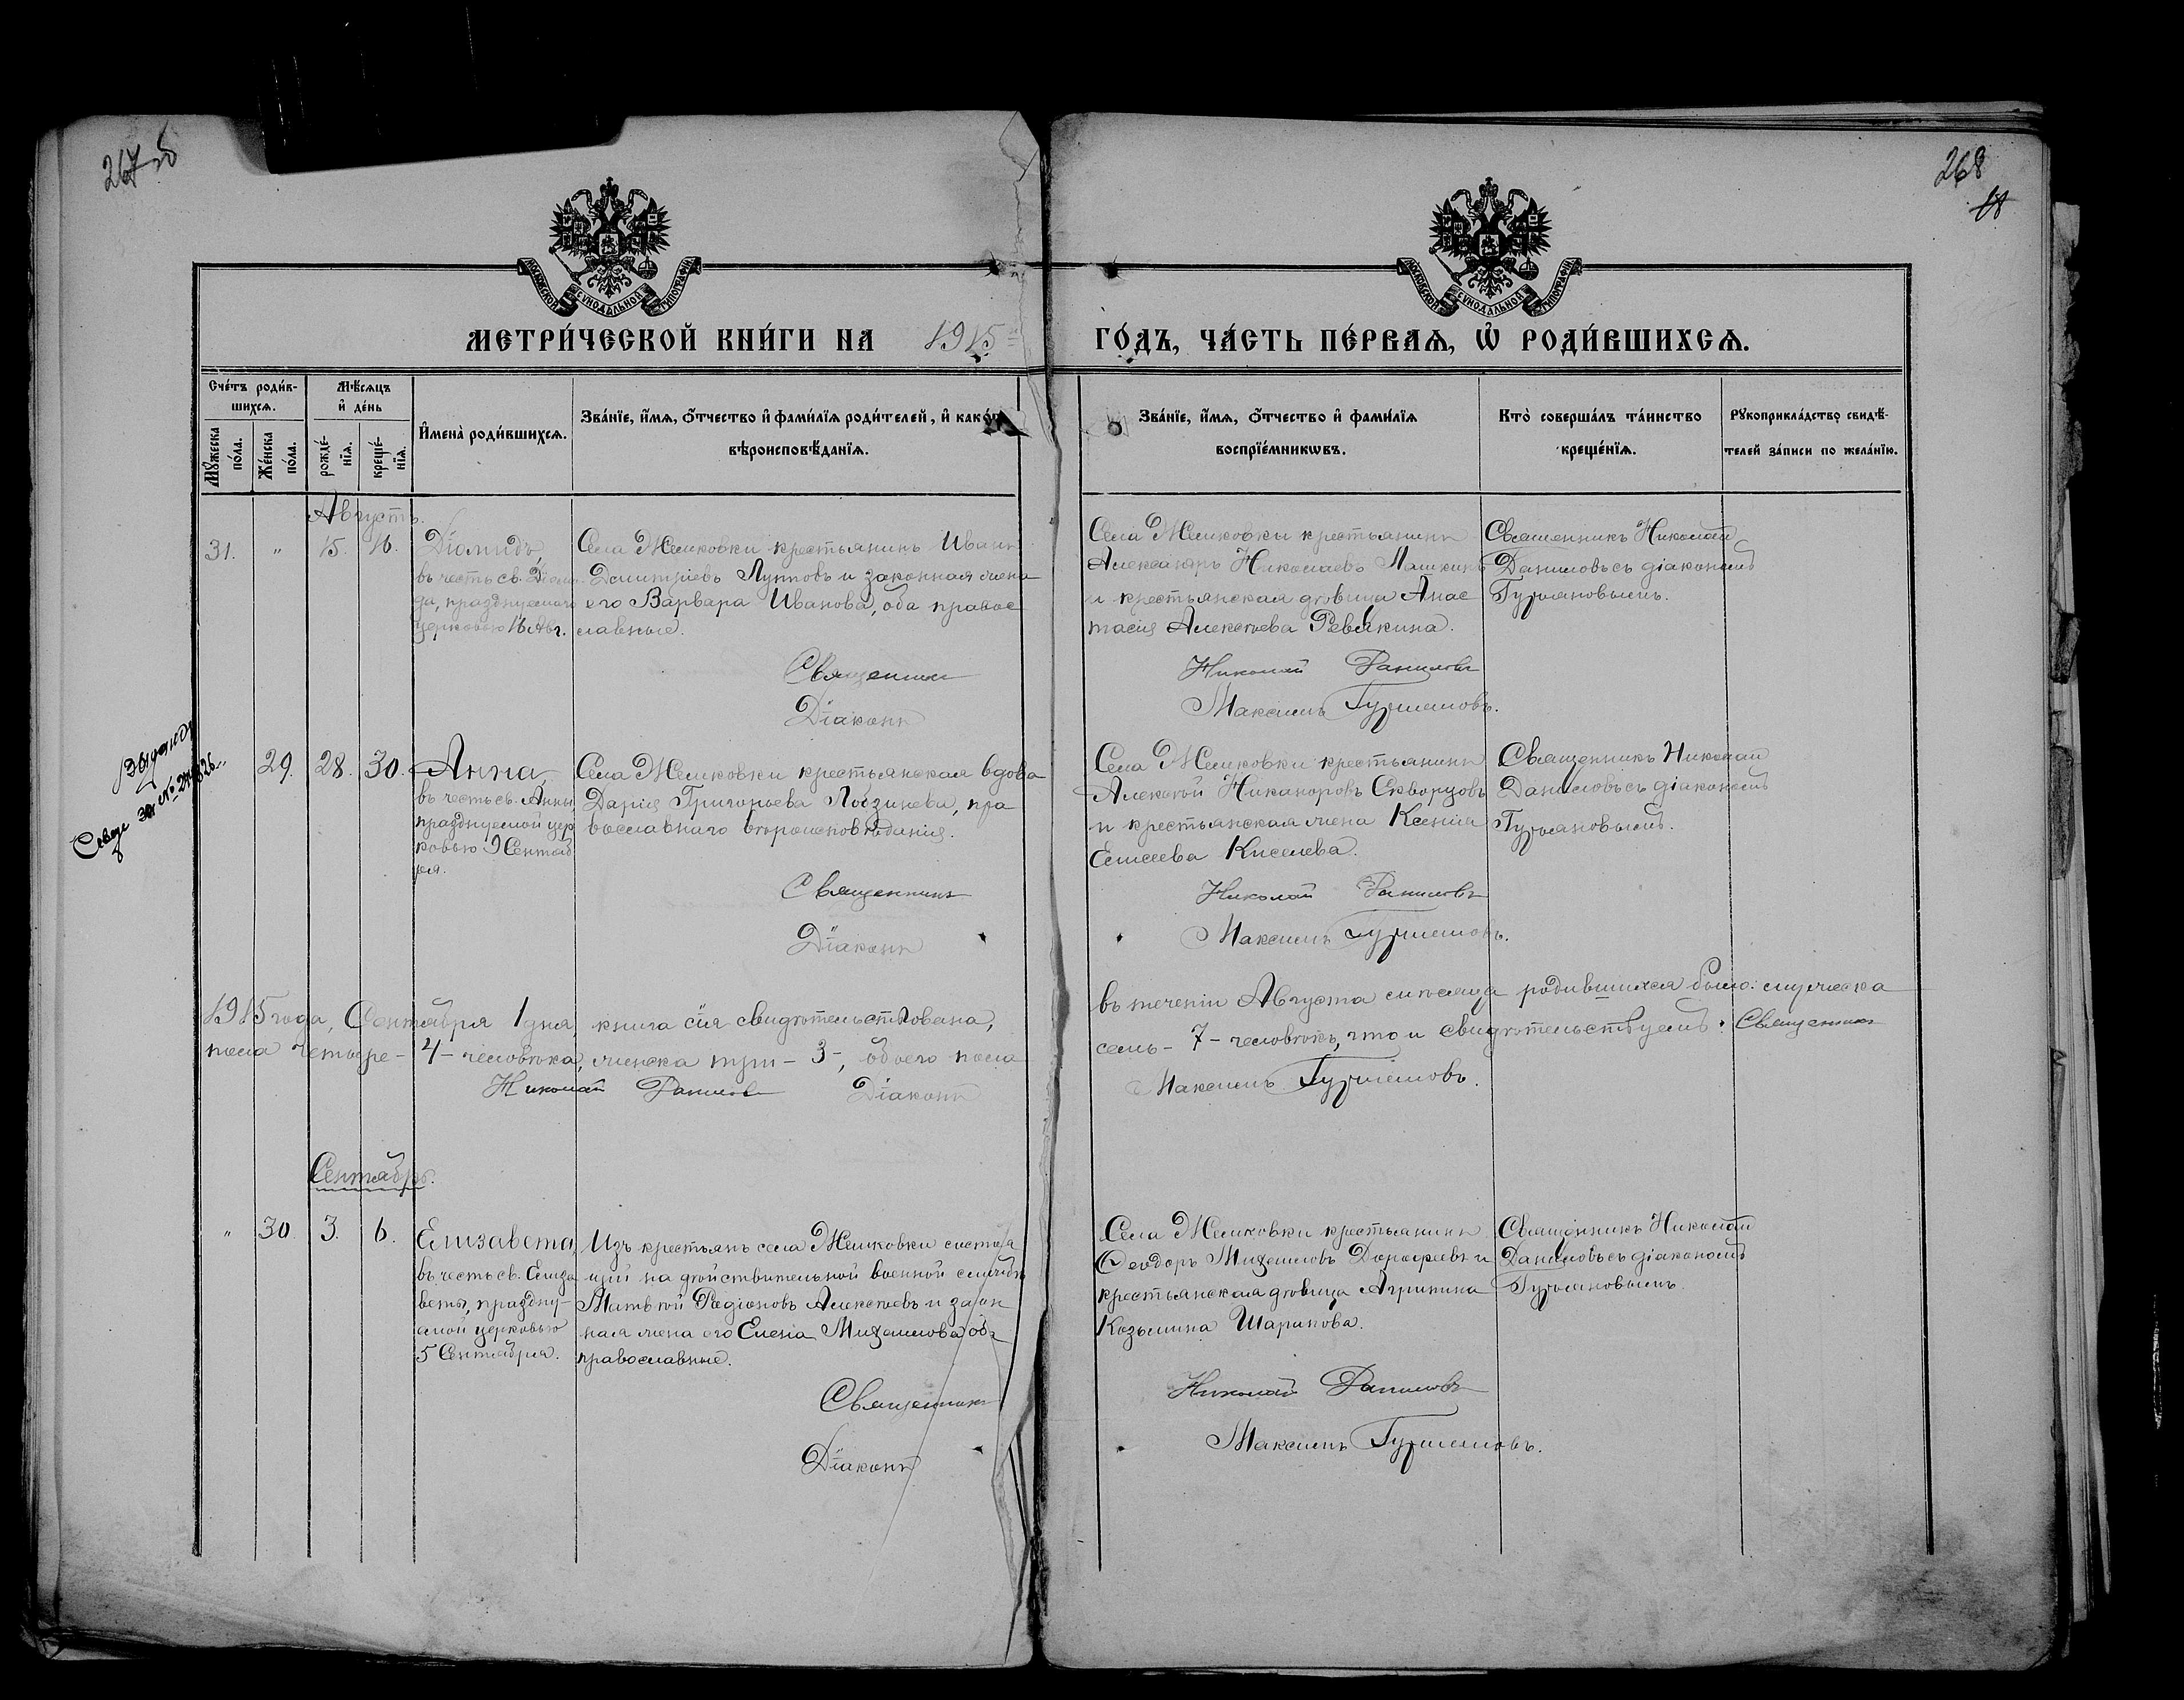 267 об
268
18
МОСКОВСКОЙ СѴНОДАЛЬНОЙ ТИПОГРАФІИ
МОСКОВСКОЙ СѴНОДАЛЬНОЙ ТИПОГРАФІИ
МЕТРИ́ЧЕСКОЙ КНИ́ГИ НА 1915 ГО́ДЪ, ЧА́СТЬ ПЕ́РВАЯ, Ѽ РОДИ́ВШИХСЯ.
Сче́тъ роди́в-
шихся.
Мꙋ́жеска
по́ла.
Же́нска
по́ла.
Мѣ́сяцъ
и҆ де́нь
рожде́-
нїя.
креще́-
нїя.
И҆мена̀ роди́вшихся.
Зва́нїе, и҆́мя, ѻ҆́тчество и҆ фами́лїя роди́телей, и҆ како́гѡ
вѣроисповѣ́данїя.
Зва́нїе, и҆́мя, ѻ҆́тчество и҆ фами́лїя
воспрїе́мникѡвъ.
Кто̀ соверша́лъ та́инство
креще́нїя.
Рꙋкоприкла́дство свидѣ́-
телей за́писи по жела́нїю.
Августъ.
31. " 15. 16.
Діомидъ,
въ честь св. Діоми-
да, празднуемаго
церковью 16 Авг.
Села Жемковки крестьянинъ Иванъ
Димитріевъ Лупповъ и законная жена
его Варвара Иванова, оба правос
лавные.
Священникъ
Діаконъ
Села Жемковки крестьянинъ
Александръ Николаевъ Машкинъ
и крестьянская дѣвица Анас
тасія Алексѣева Ревякина.
Николай Даниловъ
Максимъ
Священникъ Николай
Даниловъ съ діакономъ
29. 28. 30.
Анна,
въ честь св. Анны
празднуемой цер
ковью 9 Сентяб
ря.
Села Жемковки крестьянская вдова
Дарія Григорьева Лобзинева, пра
вославнаго вѣроисповѣданія.
Священникъ
Діаконъ
Села Жемковки крестьянинъ
Алексѣй Никаноровъ Скворцовъ
и крестьянская жена Ксенія
Елисеева Киселева.
Николай Даниловъ
Максимъ
Священникъ Николай
Даниловъ съ діакономъ
1915 года, Сентября 1 дня, книга сія свидѣтельствована, въ теченіи Августа мѣсяца родившихся было: мужеска
пола четыре - 4 - человѣка, женска три - 3 -, обоего пола семь - 7 - человѣкъ, что и свидѣтельствуемъ: Священникъ
Николай Даниловъ Діаконъ Максимъ
Сентябрь.
" 30. 3. 6.
Елизавета,
въ честь св. Елиза
веты, праздну-
емой церковью
5 Сентября.
Изъ крестьянъ села Жемковки состоя
щій на дѣйствительной военной службѣ
Матвѣй Родіоновъ Алексѣевъ и закон
ная жена его Елена Михаилова, оба
православные.
Священникъ
Діаконъ
Села Жемковки крестьянинъ
Ѳеодоръ Михаиловъ Дорофеевъ и
крестьянская дѣвица Агрипина
Козьмина Шарипова.
Николай Даниловъ
Максимъ
Священникъ Николай
Даниловъ съ діакономъ